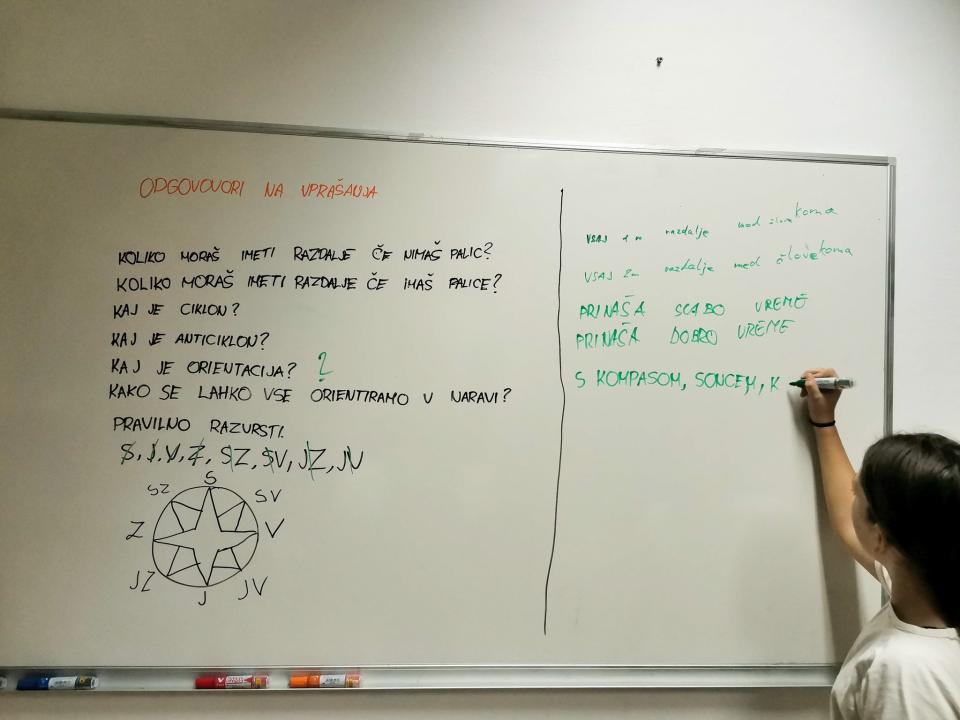 ODGOVOVORI NA VPRAŠANJA
KOLIKO MORAŠ IMETI RAZDALJE ČE NIMAŠ PALIC?
KOLIKO MORAŠ IMETI RAZDALJE ČE IMAŠ PALICE?
KAJ JE CIKLON?
KAJ JE ANTICIKLON?
KAJ JE ORIENTACIJA? ?
KAKO SE LAHKO VSE ORIENTIRAMO V NARAVI?
PRAVILNO RAZVRSTI.
S, J, V, Z, SZ, SV, JZ, JV
S
SZ SV
Z V
JZ JV
J
VSAJ 1 m razdalje med človekoma
VSAJ 2m razdalje med človekoma
PRINAŠA SLABO VREME
PRINAŠA DOBRO VREME
S KOMPASOM, SONCEM, K